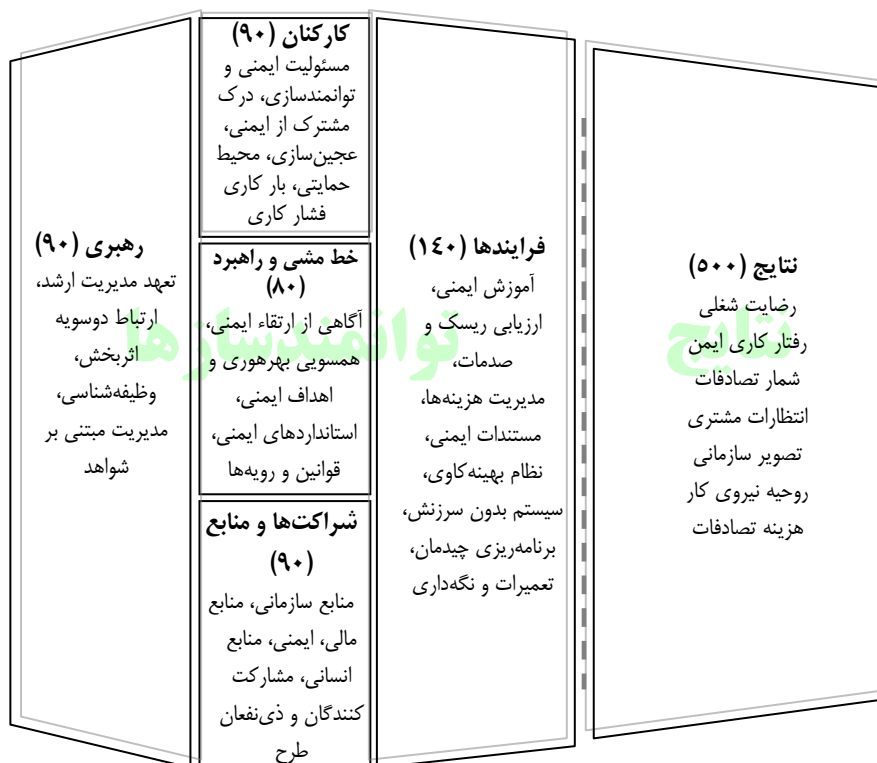 رهبری (۹۰)
تعهد مدیریت ارشد،
ارتباط دوسویه
اثربخش،
وظیفه‌شناسی،
مدیریت مبتنی بر
شواهد
کارکنان (۹۰)
مسئولیت ایمنی و
توانمندسازی، درک
مشترک از ایمنی،
عجین‌سازی، محیط
حمایتی، بار کاری
فشار کاری
خط مشی و راهبرد
(۸۰)
آگاهی از ارتقاء ایمنی،
همسویی بهره‌وری و
اهداف ایمنی،
استانداردهای ایمنی،
قوانین و رویه‌ها
شراکت‌ها و منابع
(۹۰)
منابع سازمانی، منابع
مالی، ایمنی، منابع
انسانی، مشارکت
کنندگان و ذی‌نفعان
طرح
فرایندها (۱٤۰)
آموزش ایمنی،
ارزیابی ریسک و
صدمات،
مدیریت هزینه‌ها،
مستندات ایمنی،
نظام بهینه‌کاوی،
سیستم بدون سرزنش،
برنامه‌ریزی چیدمان،
تعمیرات و نگه‌داری
توانمندسازها
نتایج (۵۰۰)
رضایت شغلی
رفتار کاری ایمن
شمار تصادفات
انتظارات مشتری
تصویر سازمانی
روحیه نیروی کار
هزینه تصادفات
نتایج